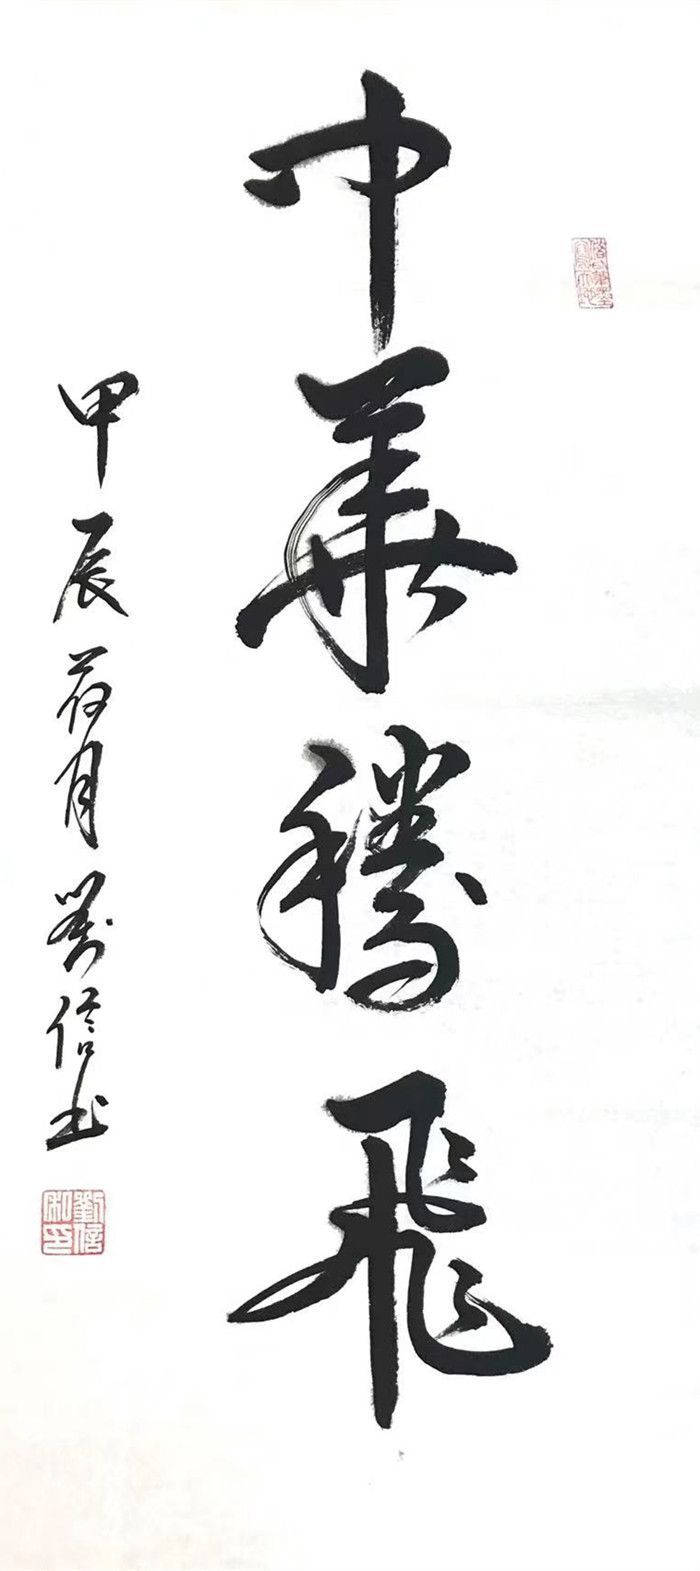 中華騰飛
甲辰荷月劉信書
劉信私印